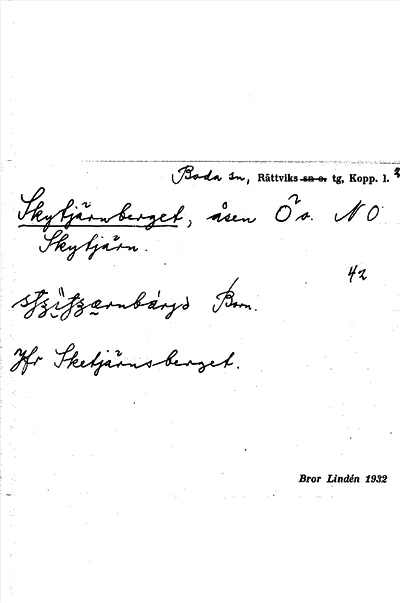 Boda sn, Rättviks sn o. tg, Kopp. l.
Skytjärnberget, åsen Ö o. NO
Skytjärn.
42
Born.
Jfr Sketjärnsberget.
Bror Lindén 1932